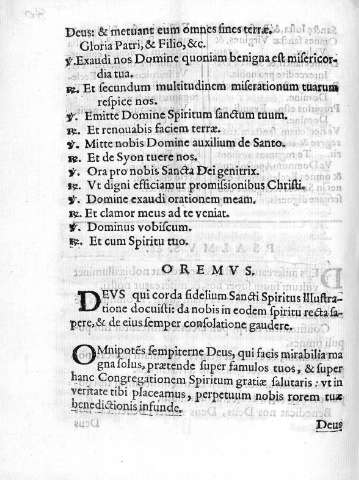 Deus: & metuant eum omnes fines terræ.
Gloria Patri, & Filio, &c.
℣. Exaudi nos Domine quoniam benigna est misericor-
dia tua.
℟. Et secundum multitudinem miserationum tuarum
respice nos.
℣. Emitte Domine Spiritum sanctum tuum.
℟. Et renouabis faciem terræ.
℣. Mitte nobis Domine auxilium de Santo.
℟. Et de Syon tuere nos.
℣. Ora pro nobis Sancta Dei genitrix.
℟. Vt digni efficiamur promissionibus Christi.
℣. Domine exaudi orationem meam.
℟. Et clamor meus ad te veniat.
℣. Dominus vobiscum.
℟. Et cum Spiritu tuo.
OREMVS.
DEVS qui corda fidelium Sancti Spiritus Illustra-
tione docuisti: da nobis in eodem spiritu recta sa-
pere, & de eius semper consolatione gaudere.
OMnipotẽs sempiterne Deus, qui facis mirabilia ma
gna solus, prætende super famulos tuos, & super
hanc Congregationem Spiritum gratiæ salutaris: vt in
veritate tibi placeamus, perpetuum nobis rorem tuæ
benedictionis infunde.
Deus